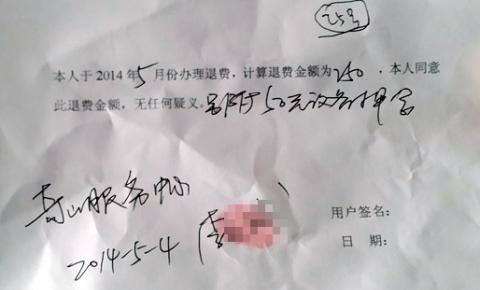 25号
本人于2014年5月份办理退费，计算退费金额为250，本人同意
此退费金额，无任何疑义。另附50元设备押金
香山服务中心
2014-5-4
李
用户签名：
日 期：